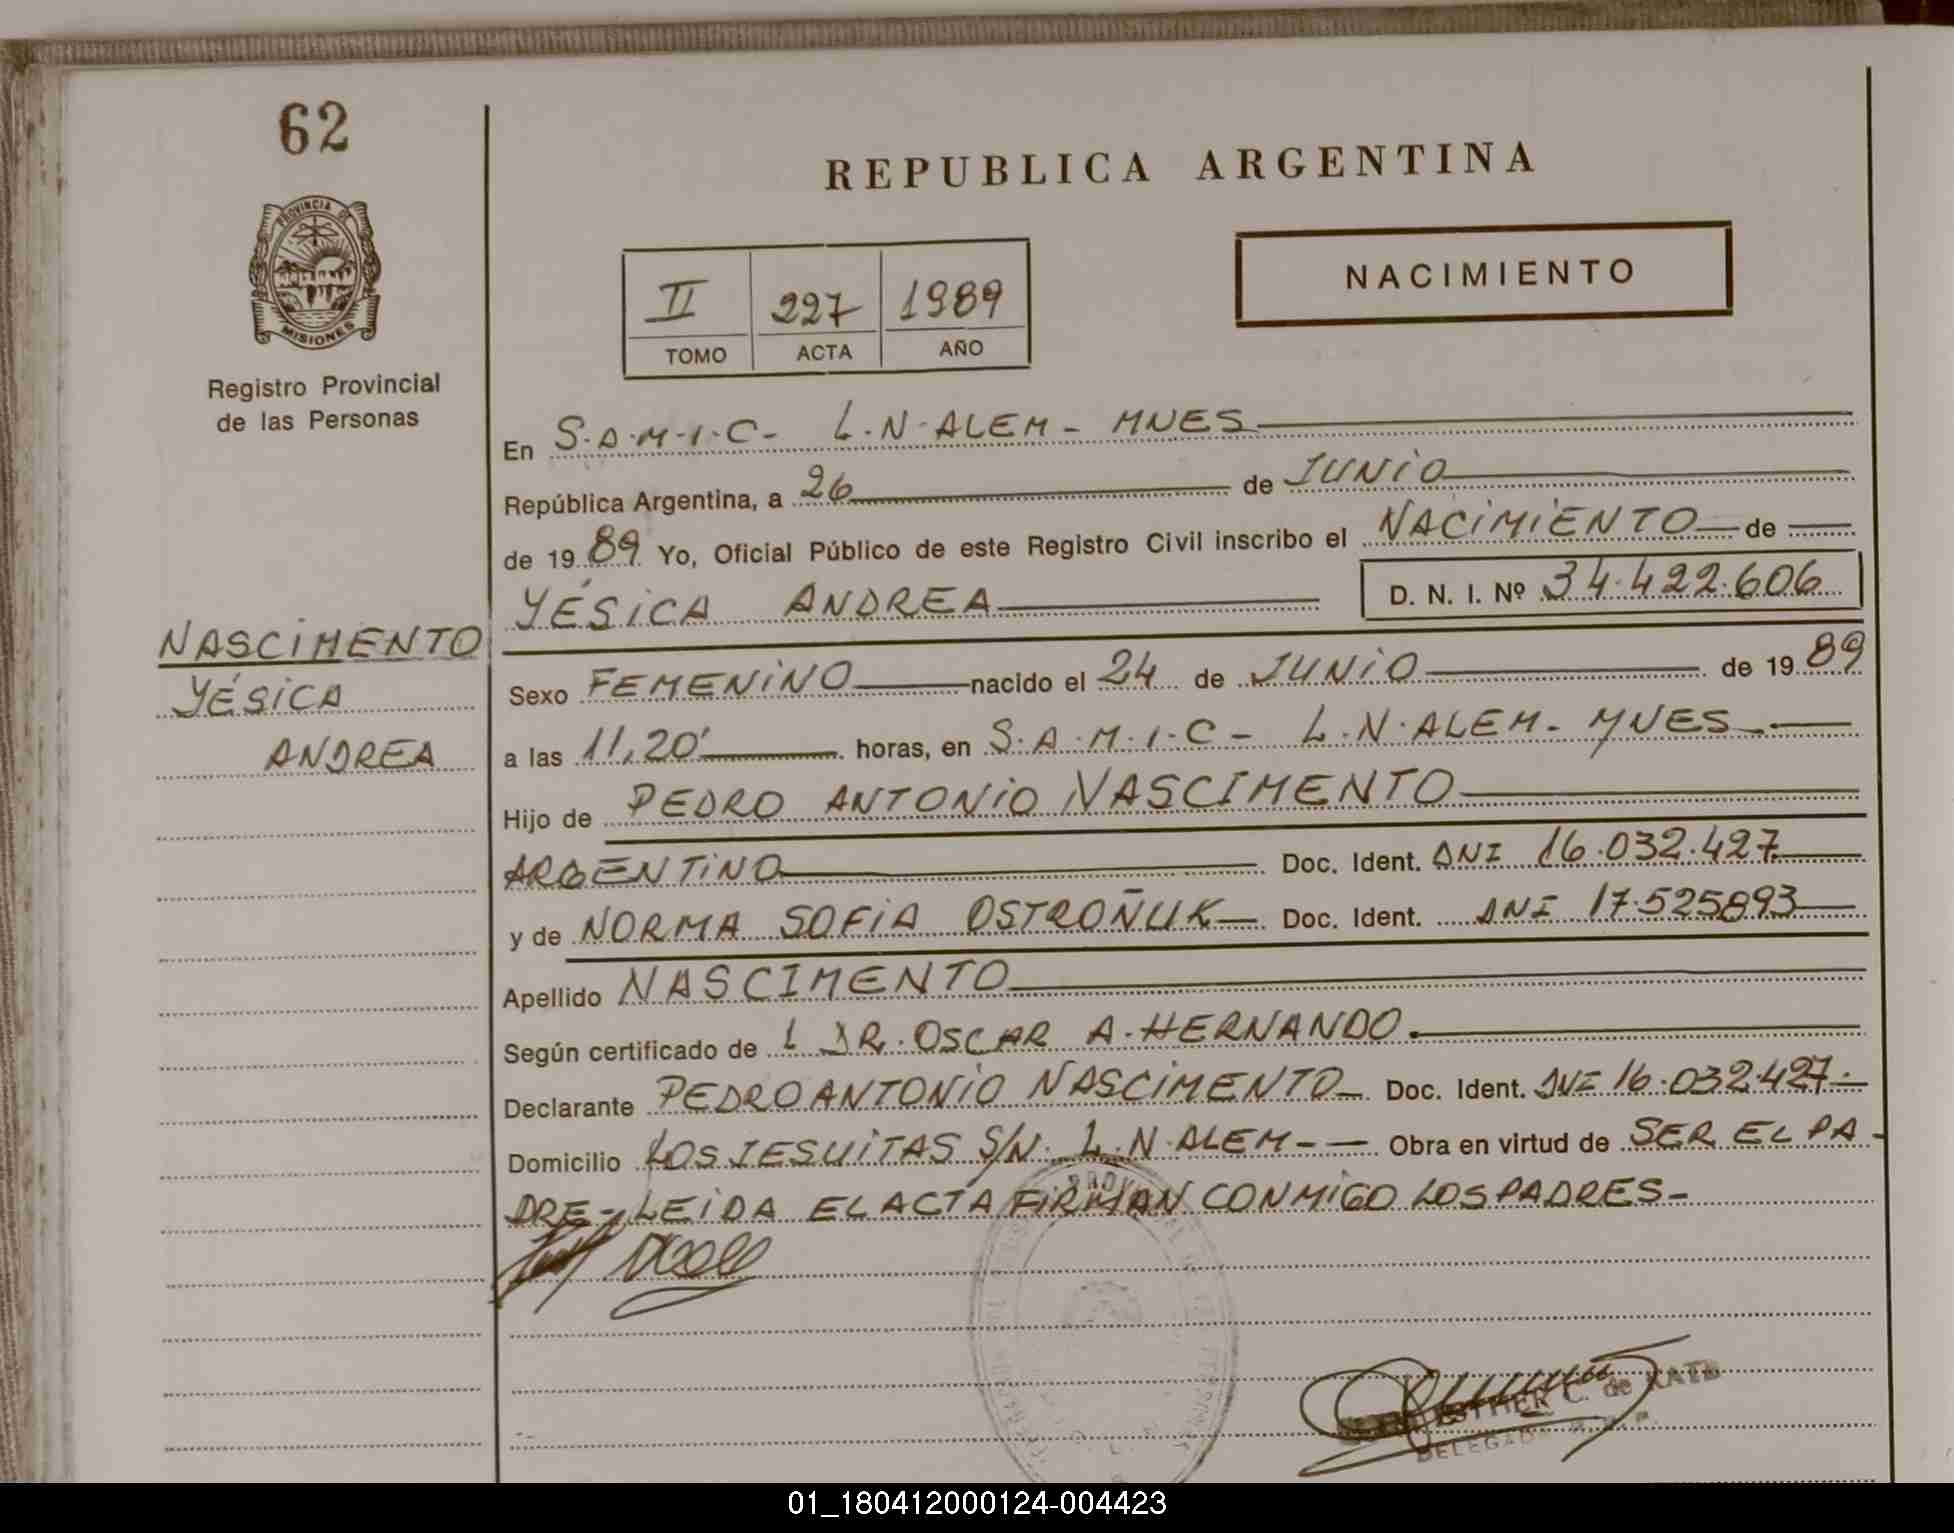 62
REPUBLICA ARGENTINA
PROVINCIA DE
MISIONES
Registro Provincial
de las Personas
II 227 1989
TOMO ACTA AÑO
NACIMIENTO
En S.A.M.I.C- L.N.ALEM- MNES
República Argentina, a 26 de JUNIO
de 1989 Yo, Oficial Público de este Registro Civil inscribo el NACIMIENTO de
YÉSICA ANDREA D. N. I. Nº 34.422.606
NASCIMENTO
YÉSICA
ANDREA
Sexo FEMENINO nacido el 24 de JUNIO de 1989
a las 11,20' horas, en S.A.M.I.C- L.N.ALEM- MNES
Hijo de PEDRO ANTONIO NASCIMENTO
ARGENTINO Doc. Ident. DNI 16.032.427
y de NORMA SOFIA OSTROÑUK Doc. Ident. DNI 17.525893
Apellido NASCIMENTO
Según certificado de L DR. OSCAR A. HERNANDO.
Declarante PEDRO ANTONIO NASCIMENTO Doc. Ident. DNI 16.032427.
Domicilio LOS JESUITAS S/N. L.N.ALEM-- Obra en virtud de SER EL PA-
DRE- LEIDA EL ACTA FIRMAN CONMIGO LOS PADRES-
ESTHER C. de KATZ
DELEGADA
01_180412000124-004423